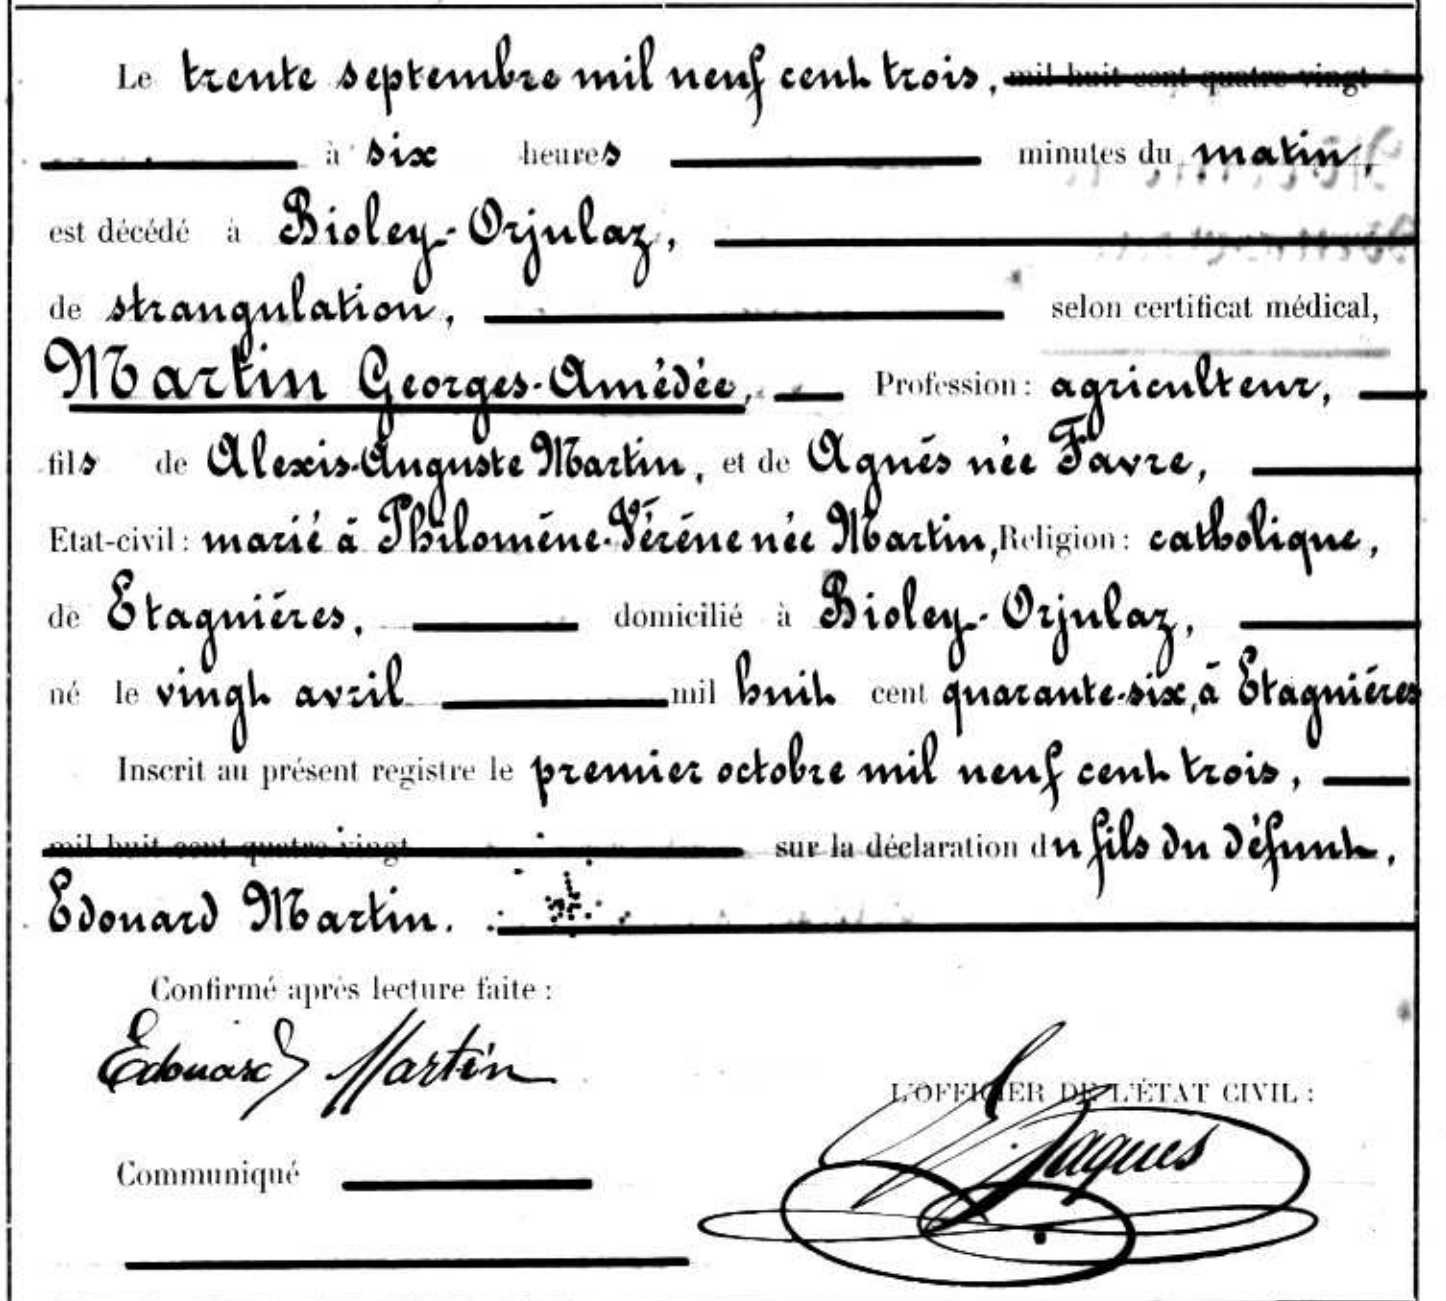 Le trente septembre mil neuf cent trois, mil huit cent quatre vingt
à six heures minutes du matin,
est décédé à Bioley-Orjulaz,
de strangulation, selon certificat médical,
Martin Georges-Amédée, Profession: agriculteur,
fils de Alexis-Auguste Martin, et de Agnés née Favre,
Etat-civil: marié à Philoméne-Véréne née Martin, Religion: catholique,
de Etagniéres, domicilié à Bioley-Orjulaz,
né le vingt avril mil huit cent quarante-six, à Etagniéres
Inscrit au présent registre le premier octobre mil neuf cent trois,
mil huit cent quatre vingt sur la déclaration du fils du défunt,
Edouard Martin.
Confirmé après lecture faite:
Edouard Martin
L'OFFICIER DE L'ÉTAT CIVIL:
Jaques
Communiqué